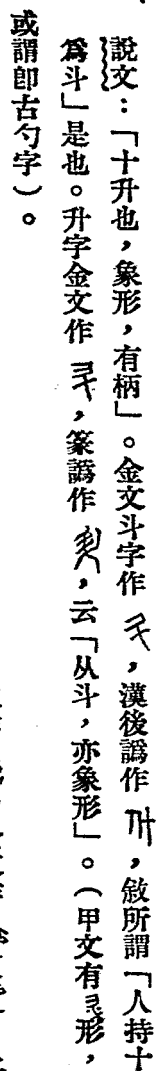 說文：「十升也，象形，有柄」。金文斗字作，漢後譌作，敍所謂「人持十
爲斗」是也。升字金文作，篆譌作，云「从斗，亦象形」。（甲文有形，
或謂卽古勺字）。